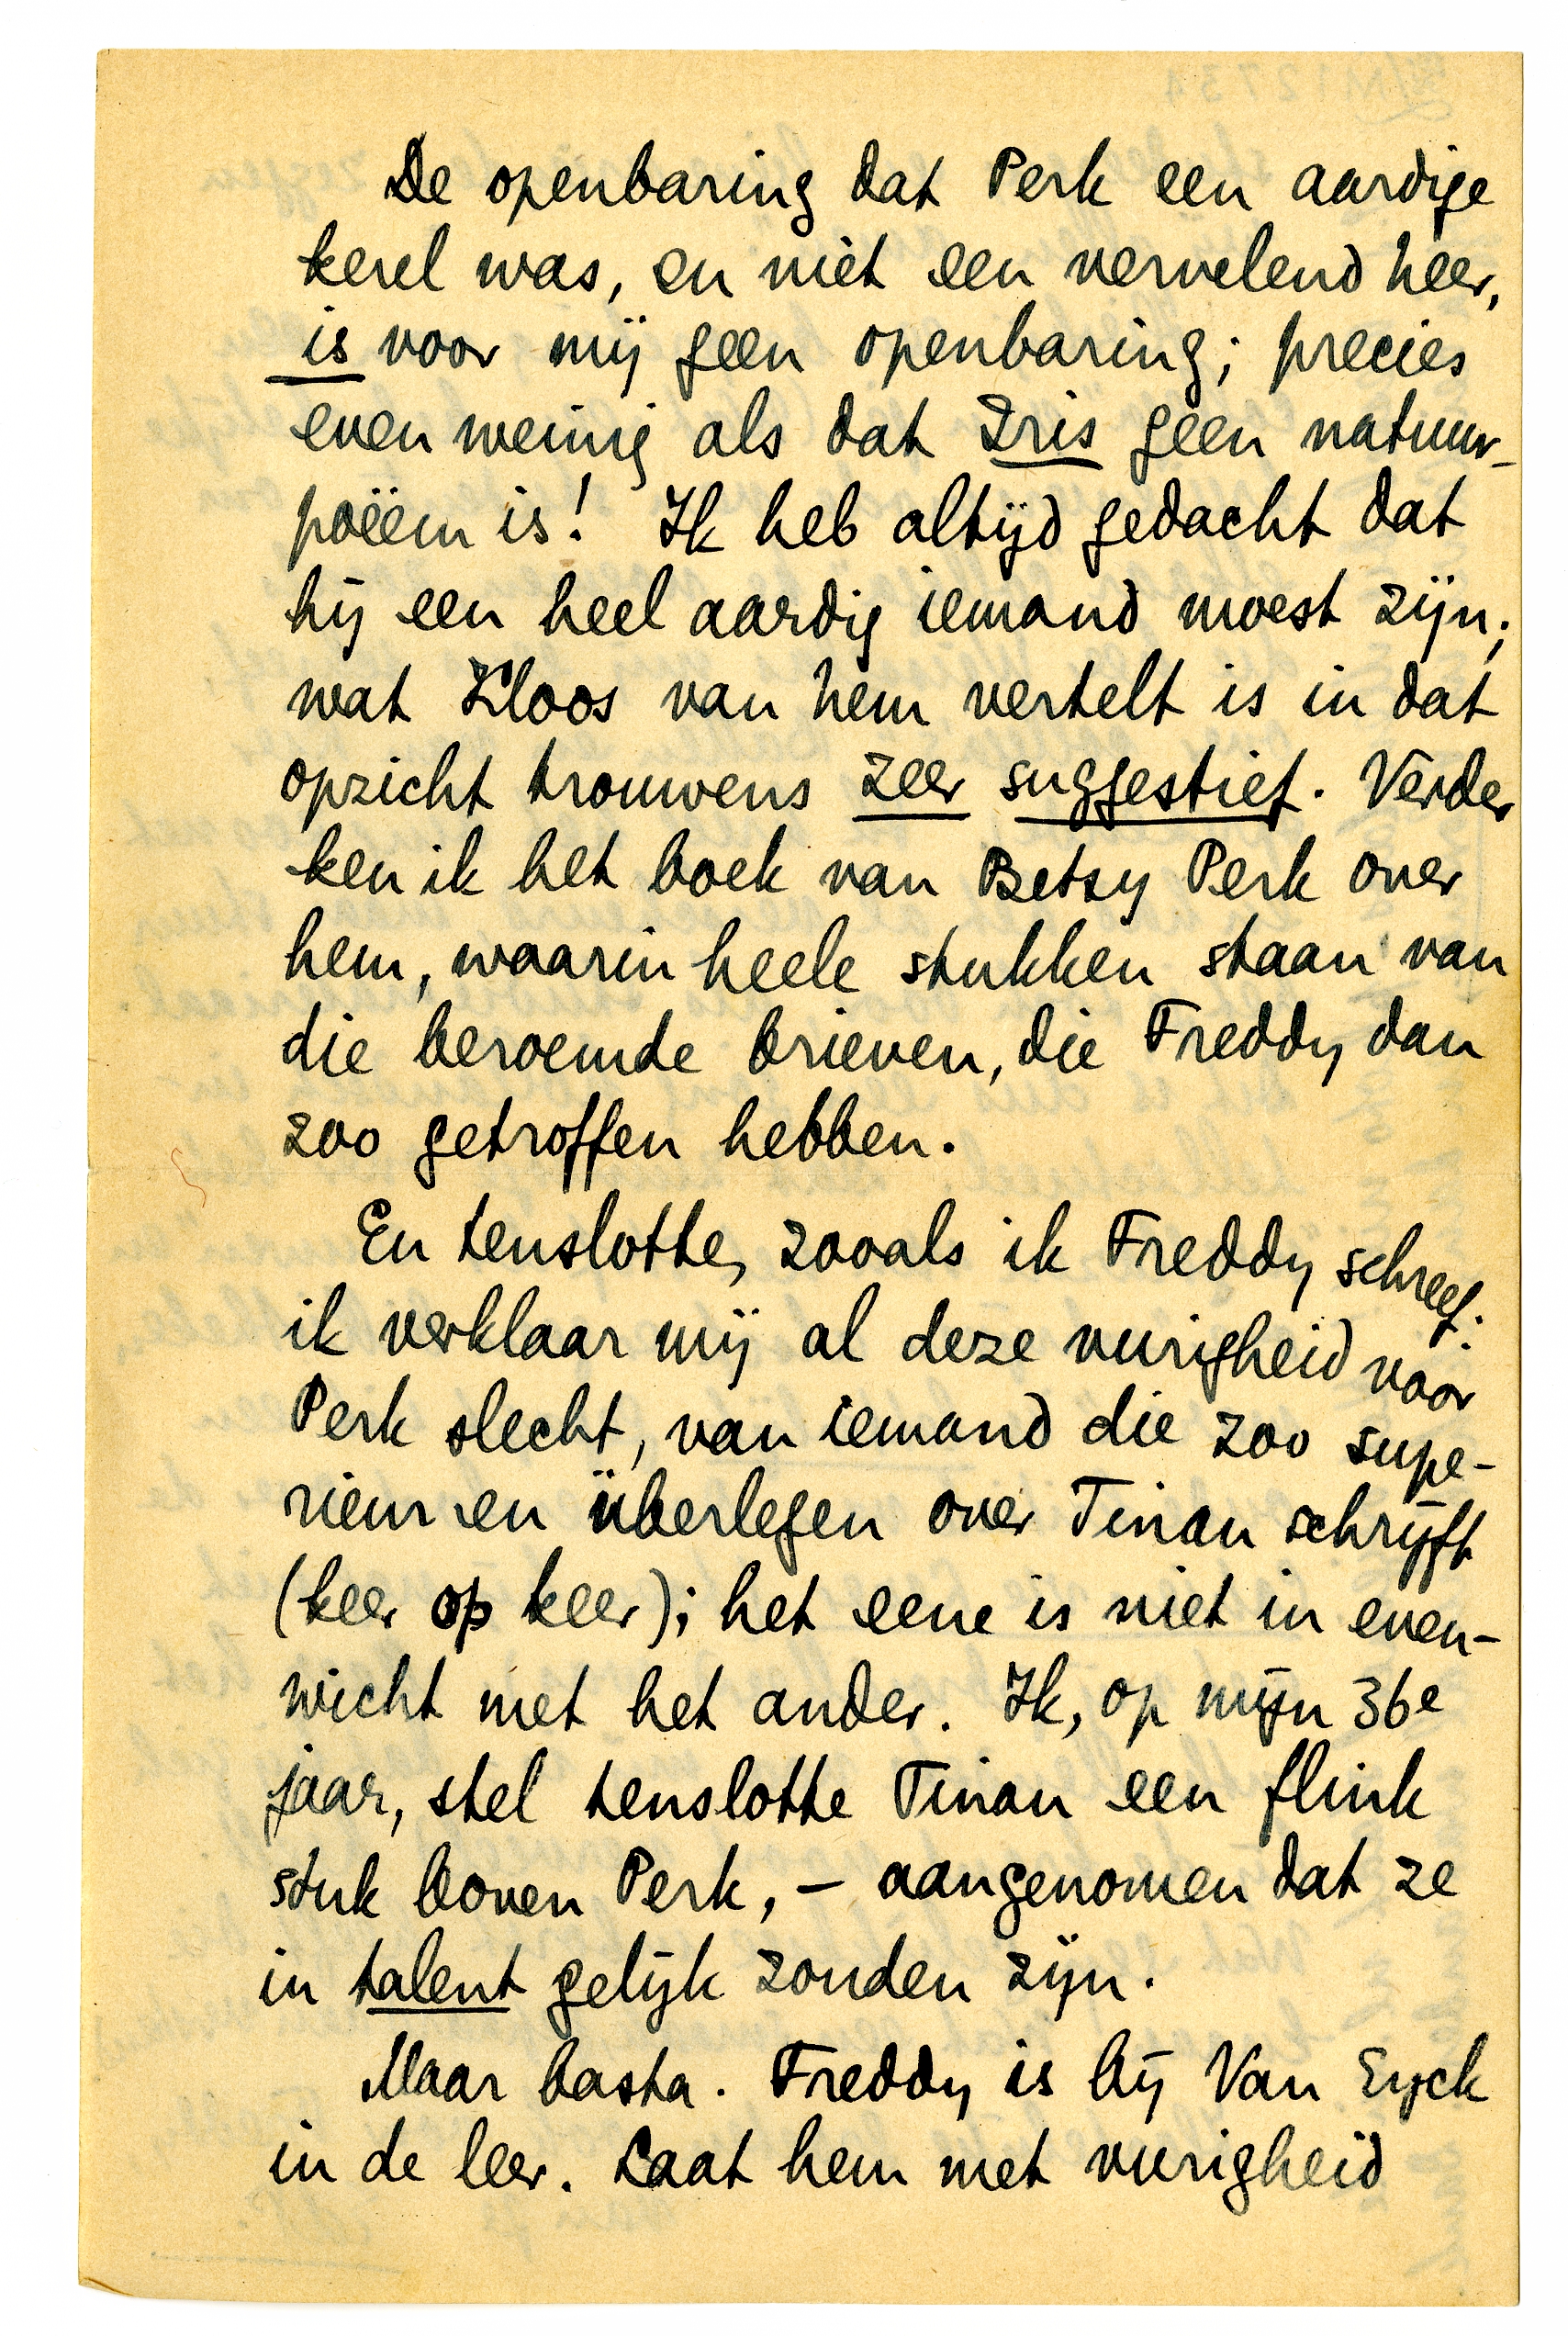 De openbaring dat Perk een aardige
kerel was, en niet een vervelend heer,
is voor mij geen openbaring; precies
even weinig als dat Iris geen natuur-
poëem is! Ik heb altijd gedacht dat
hij een heel aardig iemand moest zijn;
wat Kloos van hem vertelt is in dat
opzicht trouwens zeer suggestief. Verder
ken ik het boek van Betsy Perk over
hem, waarin heele stukken staan van
die beroemde brieven, die Freddy dan
zoo getroffen hebben.
En tenslotte, zooals ik Freddy schreef:
ik verklaar mij al deze vurigheid voor
Perk slecht, van iemand die zoo supe-
rieur en überlegen over Tinan schrijft
(keer op keer); het eene is niet in even-
wicht met het ander. Ik, op mijn 36e
jaar, stel tenslotte Tinan een flink
stuk boven Perk, – aangenomen dat ze
in talent gelijk zouden zijn.
Maar basta. Freddy is bij Van Eyck
in de leer. Laat hem met vurigheid